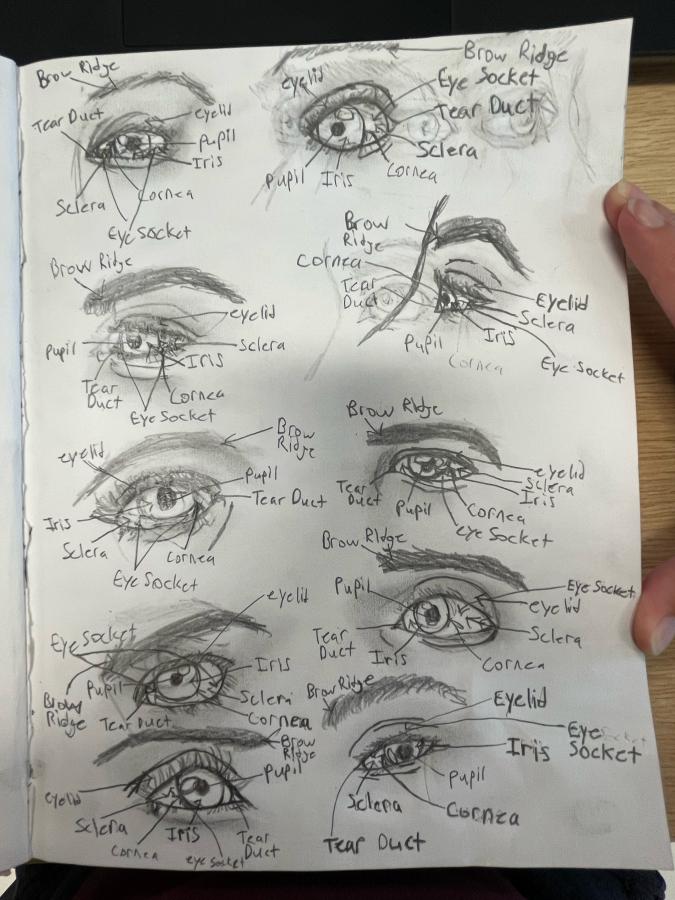 Brow Ridge
Tear Duct
eyelid
Pupil
Iris
Cornea
Sclera
Eye Socket
Brow Ridge
eyelid
Eye Socket
Tear Duct
Sclera
Cornea
Pupil
Iris
Brow Ridge
eyelid
Pupil
Sclera
Iris
Tear
Duct
Cornea
Eye Socket
Brow
Ridge
Cornea
Tear
Duct
Eyelid
Sclera
Iris
Pupil
Cornea
Eye Socket
Brow
Ridge
eyelid
Pupil
Tear Duct
Iris
Sclera
Cornea
Eye Socket
Brow Ridge
eyelid
Sclera
Iris
Tear
Duct
Pupil
Cornea
eye Socket
Brow Ridge
Pupil
Eye Socket
eyelid
Tear
Duct
Sclera
Iris
Cornea
eyelid
Eye Socket
Iris
Pupil
Brow
Ridge
Sclera
Tear Duct
Cornea
Brow Ridge
Eyelid
Eye
Socket
Iris
Pupil
Sclera
Cornea
Tear Duct
Brow
Ridge
Pupil
eyelid
Sclera
Iris
Tear
Duct
Cornea
eye socket